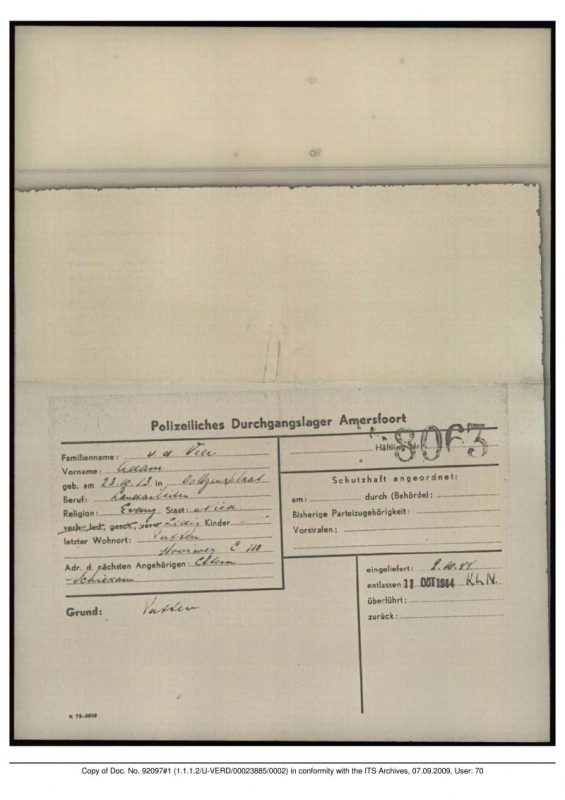 Polizeiliches Durchgangslager Amersfoort
Familienname: v. d. Veer
Vorname: Adam
geb. am in
Beruf: Landarbeiter
Religion: Evang Staat:
verh., led., gesch., verw. Kinder -
letzter Wohnort: Putten
C 110
Adr. d. nächsten Angehörigen: Eltern
- Schiedam
Grund: Putten
Häftling Nr. 8063
Schutzhaft angeordnet:
am: durch (Behörde):
Bisherige Parteizugehörigkeit:
Vorstrafen:
eingeliefert:
entlassen 11 OCT 1944 K.L.N.
überführt:
zurück:
K 73-9859
Copy of Doc. No. 92097#1 (1.1.1.2/U-VERD/00023885/0002) in conformity with the ITS Archives, 07.09.2009, User: 70